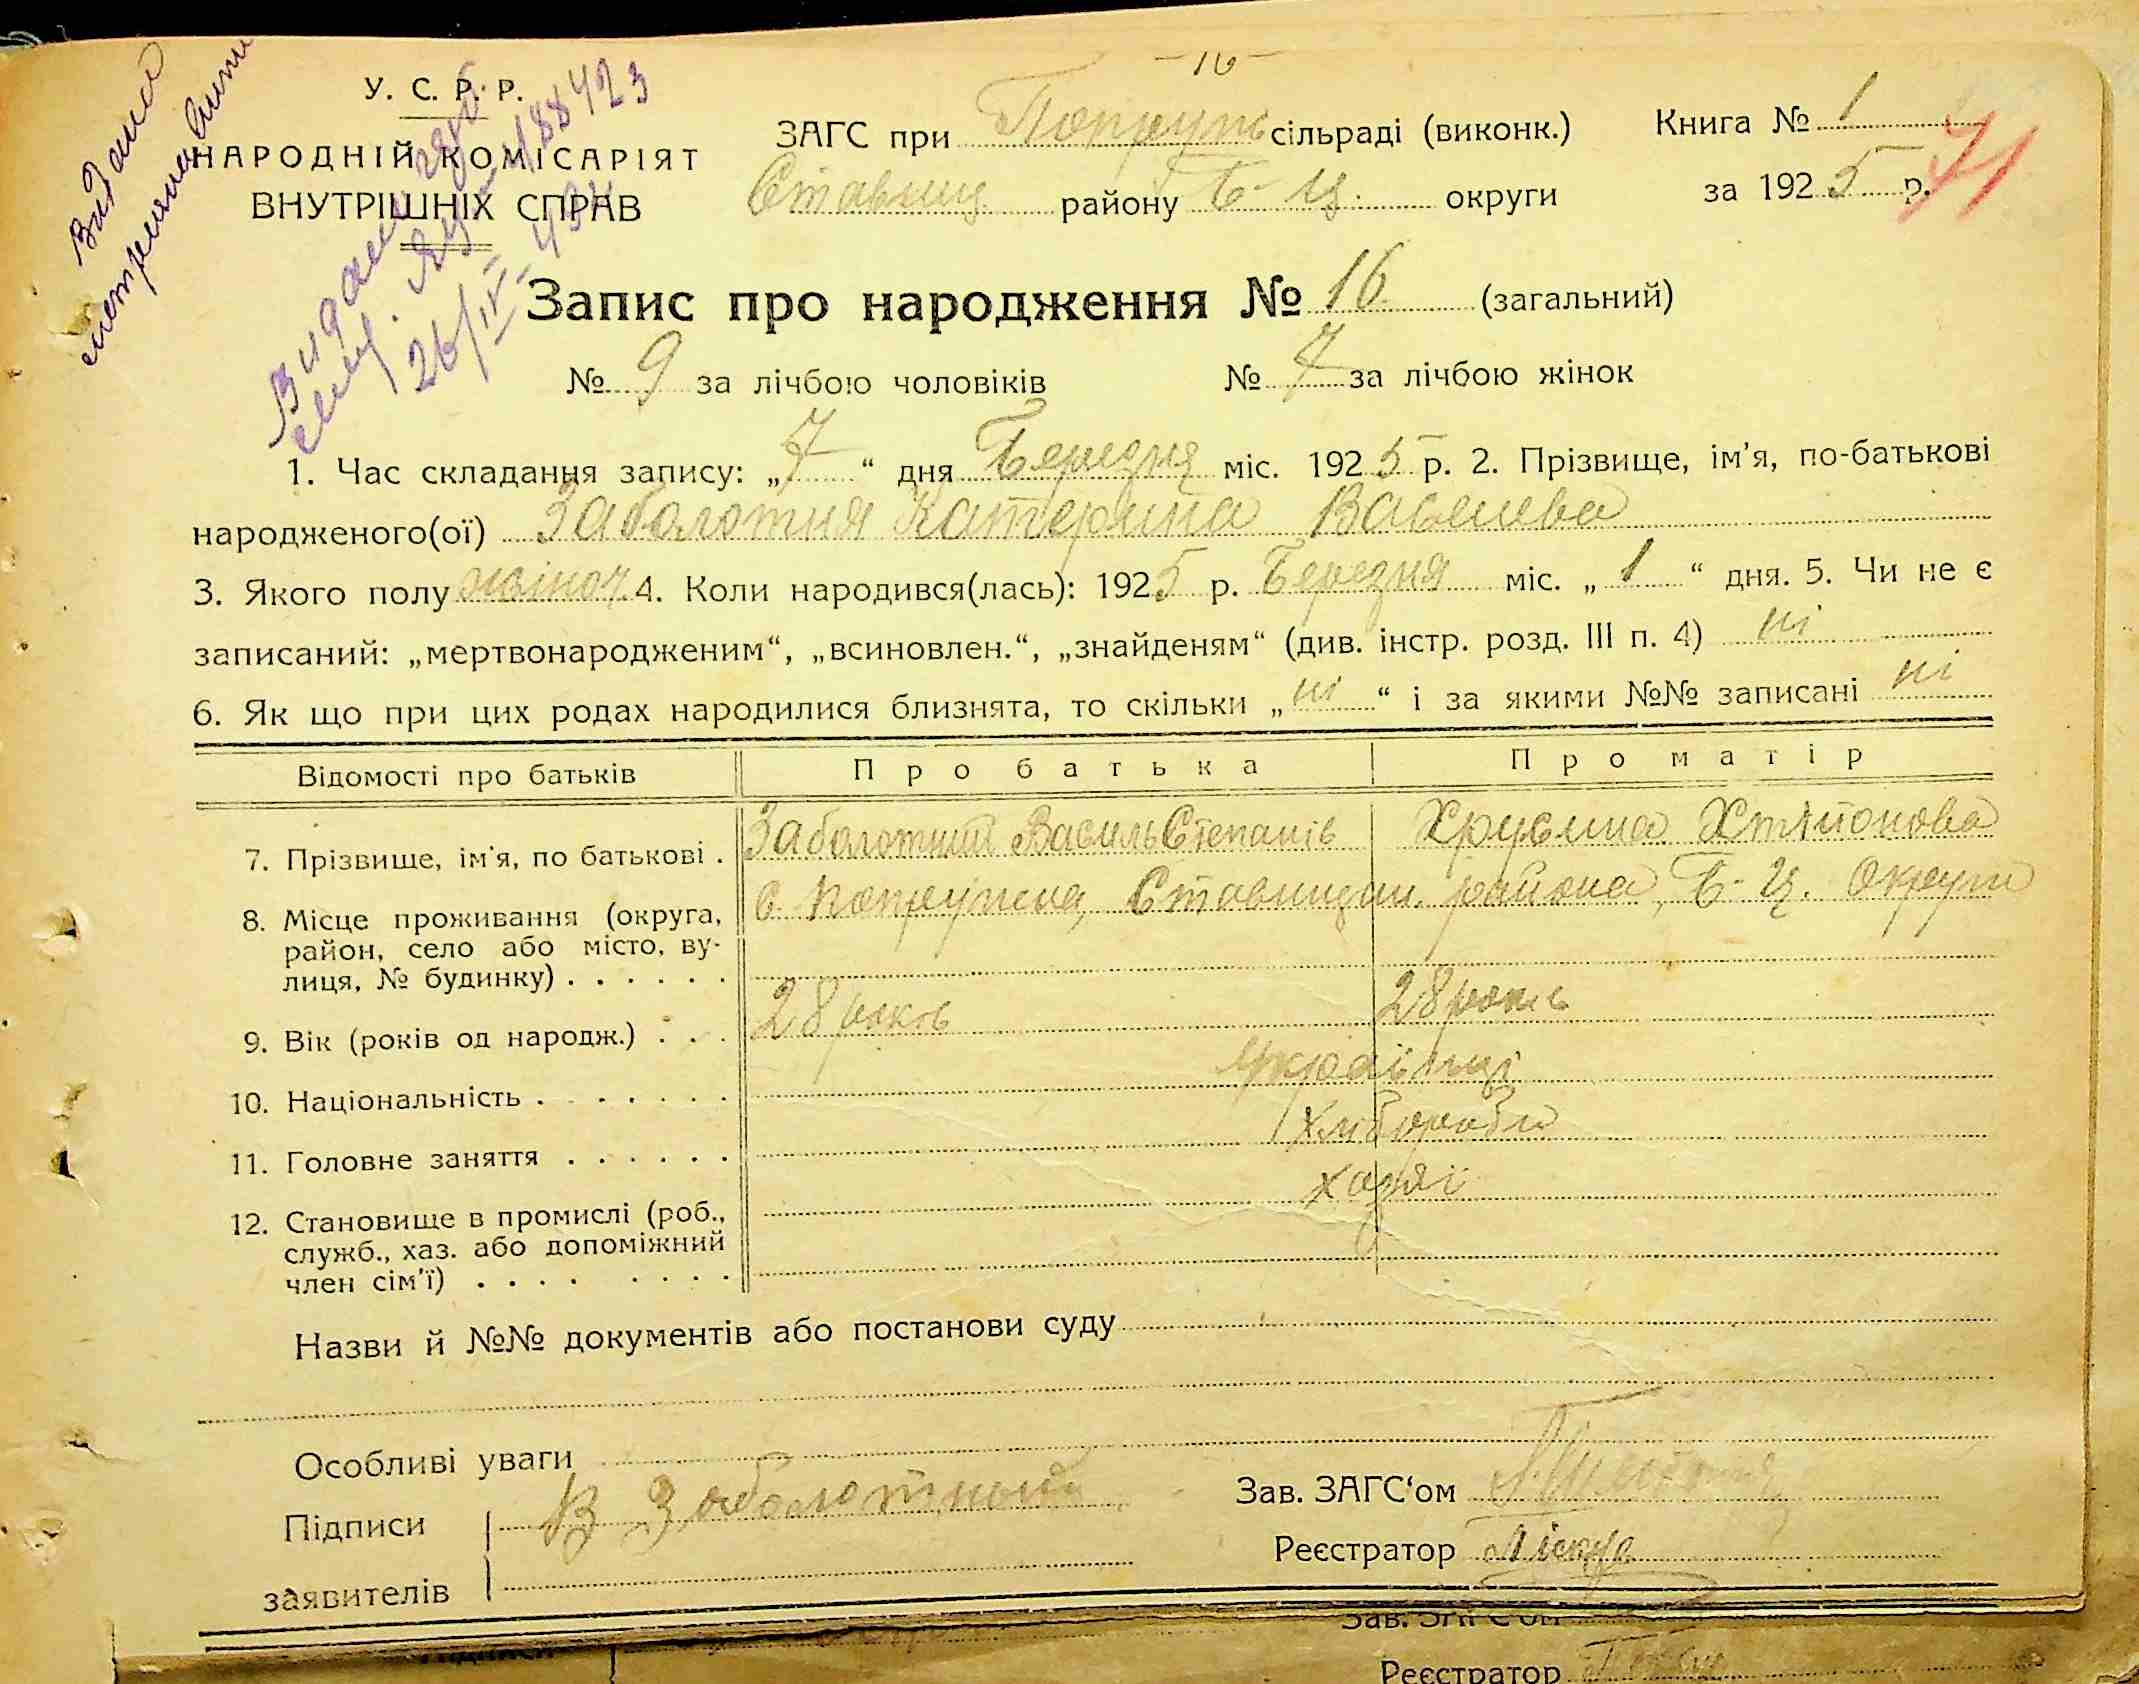 -16-
У. С. Р. Р.
НАРОДНІЙ КОМІСАРІЯТ
ВНУТРІШНІХ СПРАВ
ЗАГС при Попруж сільраді (виконк.)
Ставищ. району Б-Ц. округи
Книга № 1
за 1925 р.
71
Видано
188423
Запис про народження № 16 (загальний)
№ 9 за лічбою чоловіків № 7 за лічбою жінок
1. Час складання запису: „7“ дня Березня міс. 1925 р. 2. Прізвище, ім'я, по-батькові
народженого(ої) Заболотня Катерина Васильева
3. Якого полу жіноч. 4. Коли народився(лась): 1925 р. Березня міс. „1“ дня. 5. Чи не є
записаний: „мертвонародженим“, „всиновлен.“, „знайденям“ (див. інстр. розд. III п. 4) ні
6. Як що при цих родах народилися близнята, то скільки „ні“ і за якими №№ записані ні
Відомості про батьків Про батька Про матір
7. Прізвище, ім'я, по батькові . Заболотний Василь Степанів Хрусина
8. Місце проживання (округа, с. Попружна, Ставищан. района, Б-Ц. Округи
район, село або місто, ву-
лиця, № будинку) . . . . . .
9. Вік (років од народж.) . . . 28 років 28 років
10. Національність . . . . . . . Українці
11. Головне заняття . . . . . . Хлібороби
12. Становище в промислі (роб., хозяї
служб., хаз. або допоміжний
член сім'ї) . . . . . . . .
Назви й №№ документів або постанови суду
Особливі уваги
Підписи В Заболотный
заявителів
Зав. ЗАГС'ом
Реєстратор
Зав. ЗАГС'ом
Підписи
Реєстратор